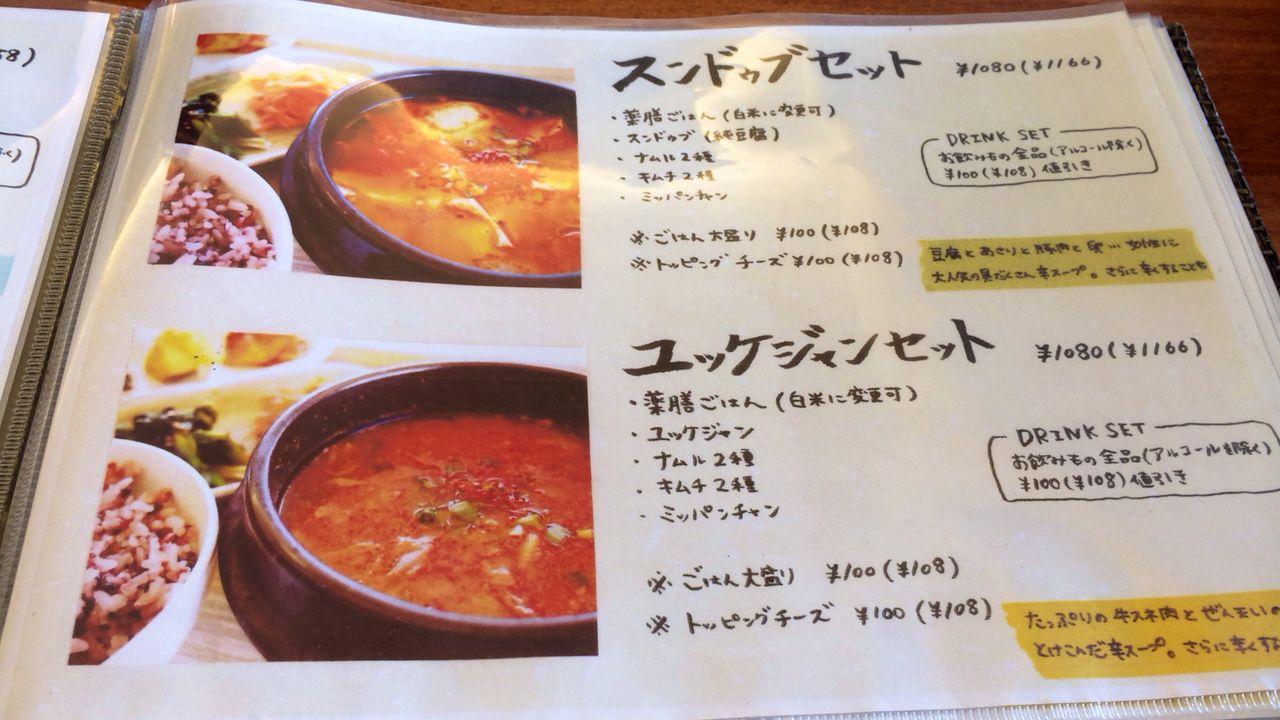 58)
スンドゥブセット ¥1080(¥1166)
・薬膳ごはん(白米に変更可)
・スンドゥブ(純豆腐)
・ナムル2種
・キムチ2種
・ミッパンチャン
DRINK SET
お飲みもの全品(アルコール除く)
¥100(¥108)値引き
※ごはん大盛り ¥100(¥108)
※トッピングチーズ ¥100(¥108)
豆腐とあさりと豚肉と卵…女性に
大人気の具だくさん辛スープ。さらに辛くすることも
ユッケジャンセット ¥1080(¥1166)
・薬膳ごはん(白米に変更可)
・ユッケジャン
・ナムル2種
・キムチ2種
・ミッパンチャン
DRINK SET
お飲みもの全品(アルコールを除く)
¥100(¥108)値引き
※ごはん大盛り ¥100(¥108)
※トッピングチーズ ¥100(¥108)
たっぷりの牛スネ肉とぜんまいの
とけこんだ辛スープ。さらに辛くする